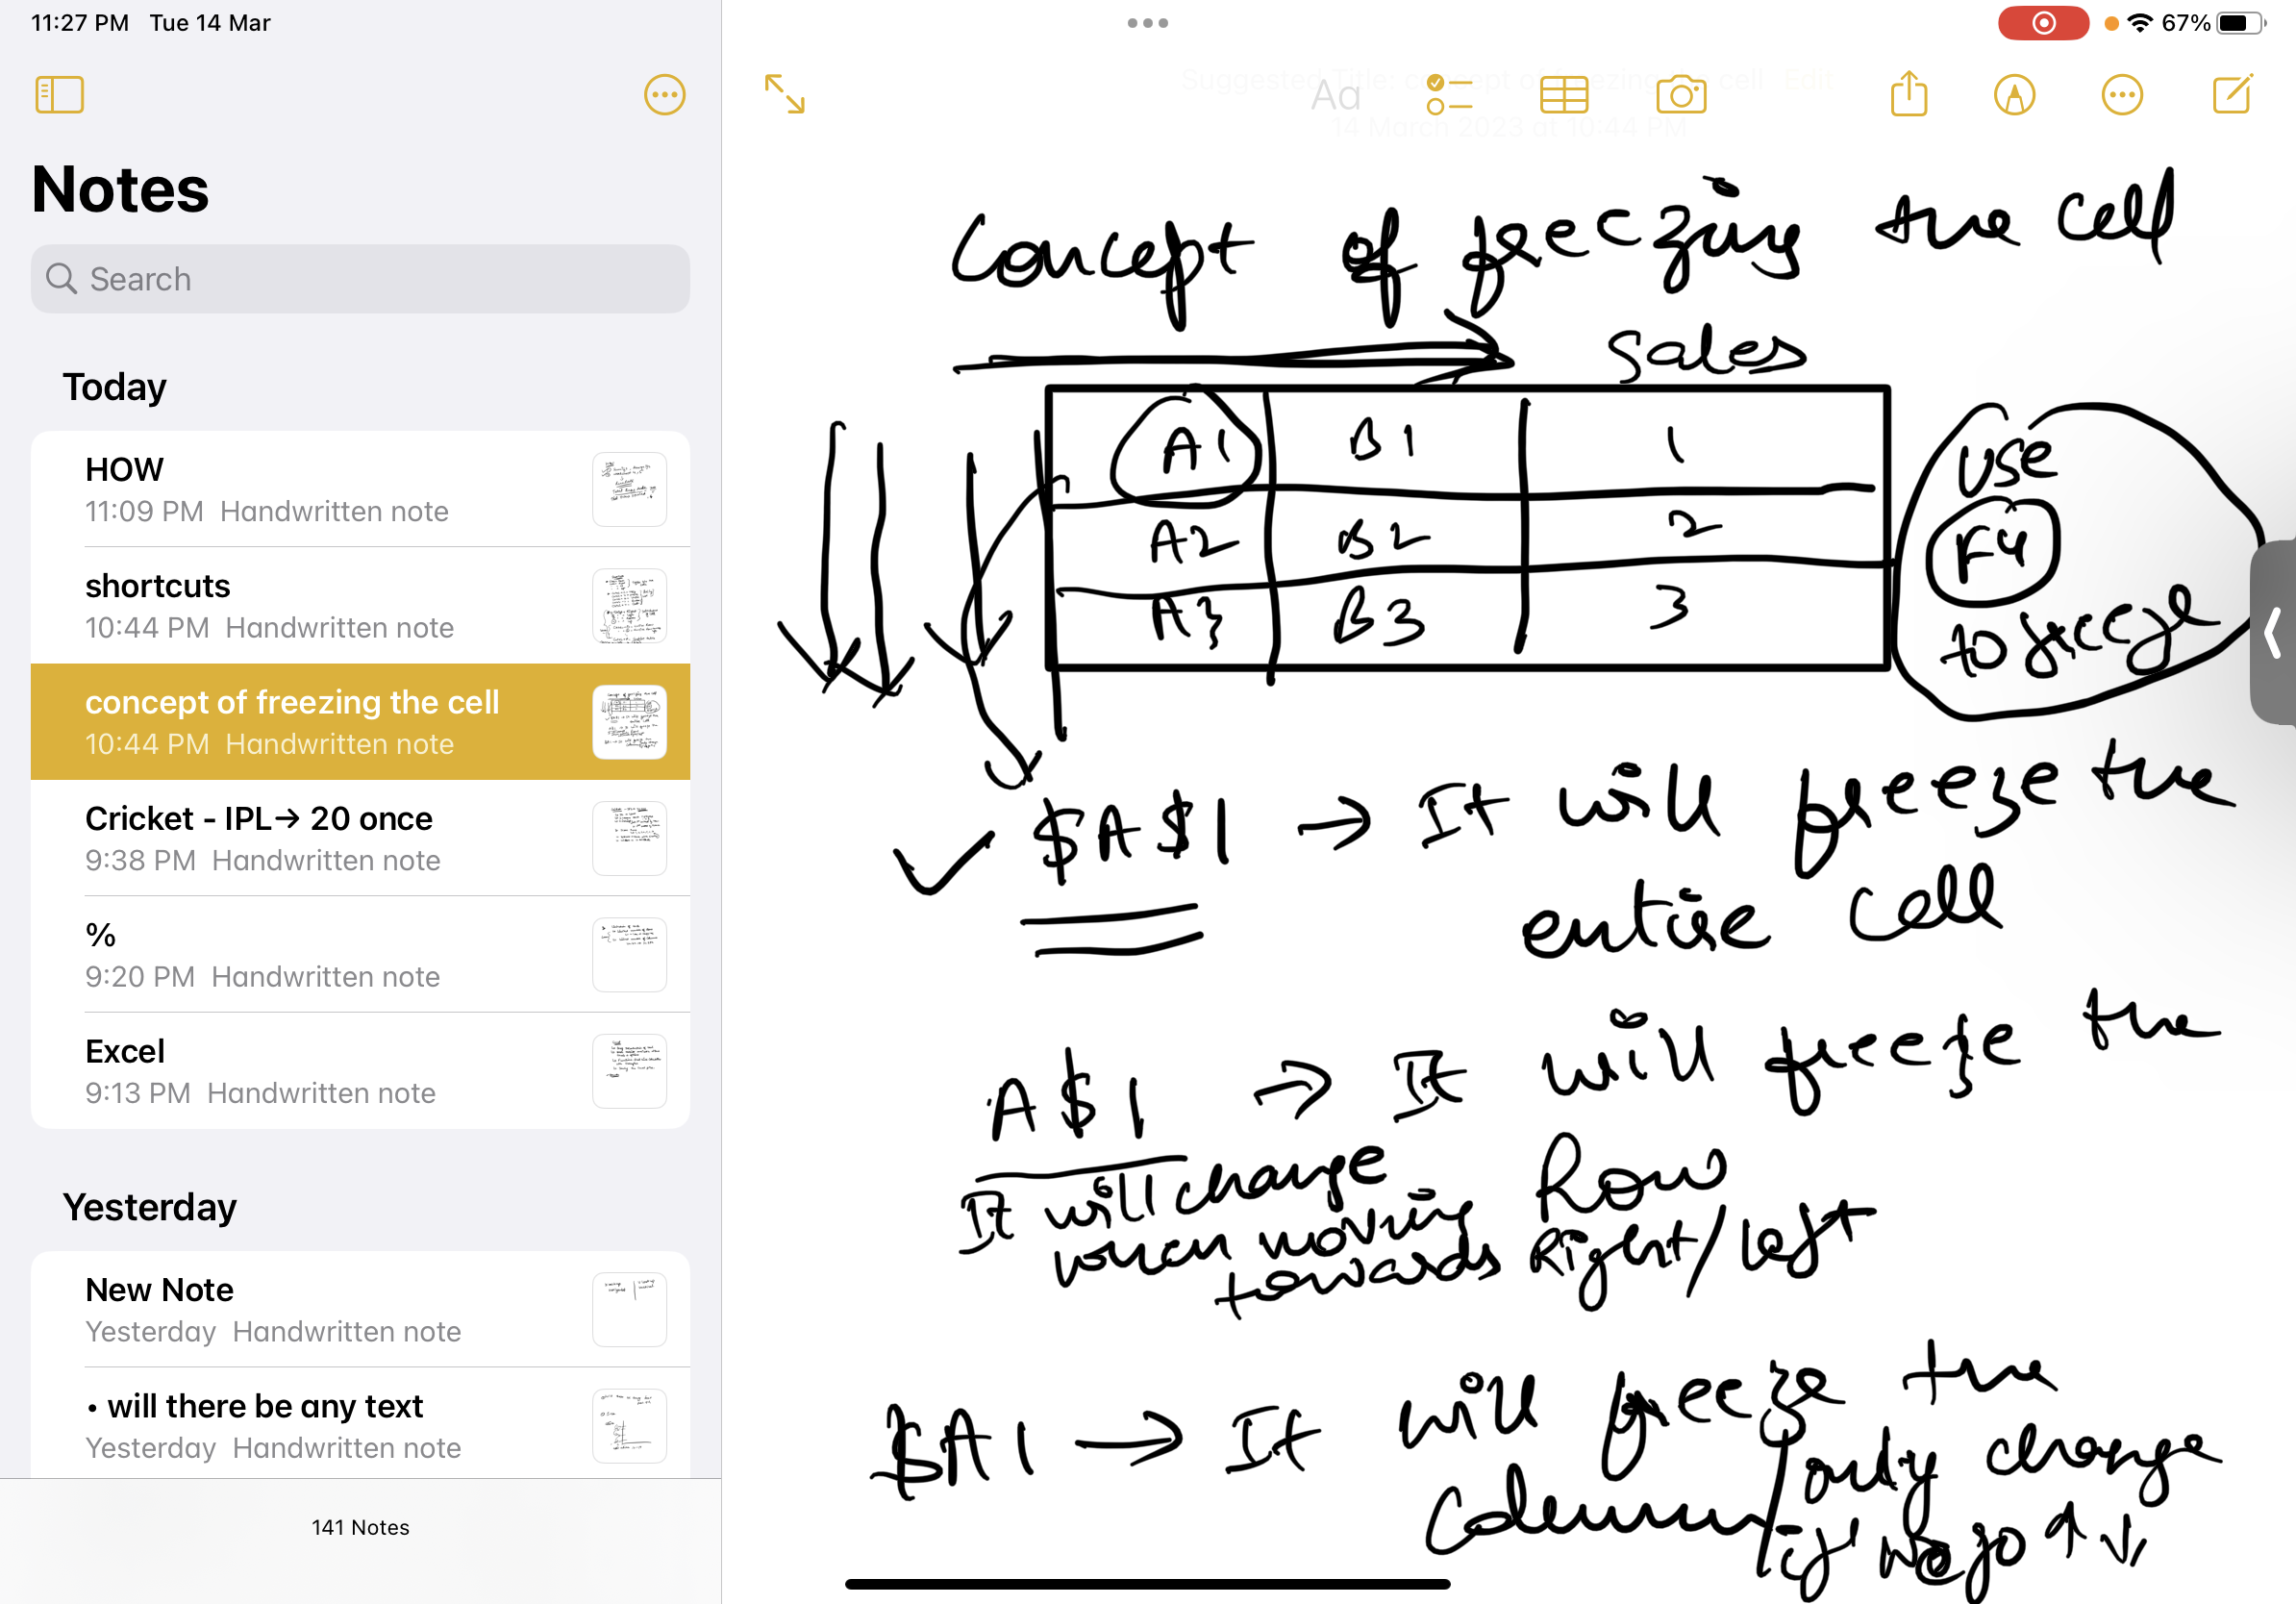 11:27 PM Tue 14 Mar
67%
Notes
Search
Today
HOW
11:09 PM Handwritten note
shortcuts
10:44 PM Handwritten note
concept of freezing the cell
10:44 PM Handwritten note
Cricket - IPL→ 20 once
9:38 PM Handwritten note
%
9:20 PM Handwritten note
Excel
9:13 PM Handwritten note
Yesterday
New Note
Yesterday Handwritten note
• will there be any text
Yesterday Handwritten note
141 Notes
Suggested Title: concept of freezing the cell Edit
Aa
14 March 2023 at 10:44 PM
Concept of freezing the cell
sales
A1 B1 1
A2 B2 2
A3 B3 3
use
F4
to freeze
$A$1 → It will freeze the
entire cell
A$1 → It will freeze the
Row
It will change
when moving
towards Right/left
$A1 → It will freeze the
Column/only change
if we go ↑↓